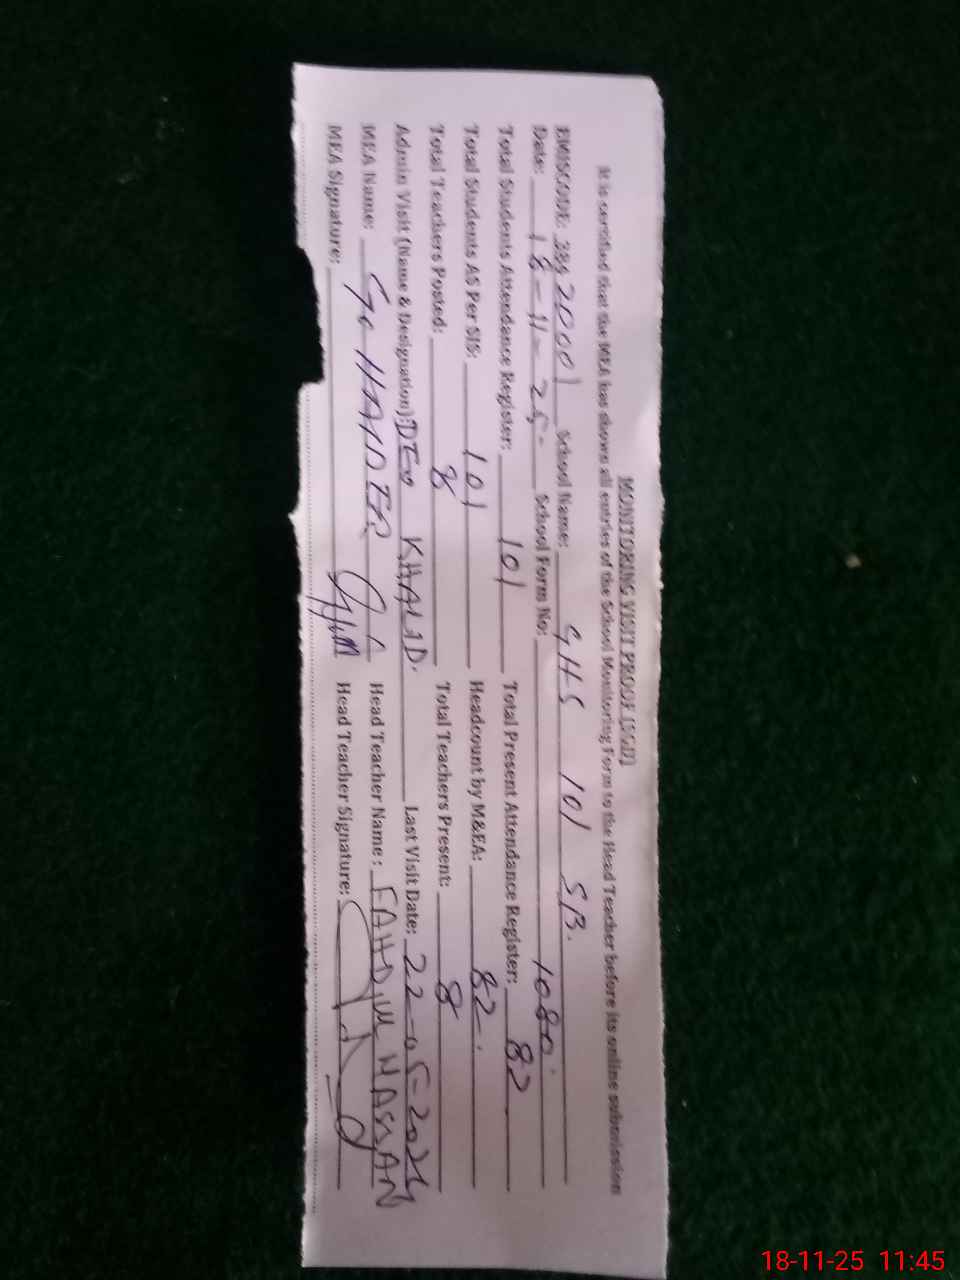 MONITORING VISIT PROOF (SGD)
It is certified that the MEA has shown all entries of the School Monitoring Form to the Head Teacher before its online submission
EMISCODE: School Name: GHS 101 SB.
Date: 18-11-25- School Form No: 1080
Total Students Attendance Register: 101 Total Present Attendance Register: 82
Total Students AS Per SIS: 101 Headcount by M&EA: 82
Total Teachers Posted: 8 Total Teachers Present: 8
Admin Visit (Name & Designation): DEO KHALID. Last Visit Date: 22-05-2025
MEA Name: HAIDER Head Teacher Name: HASSAN
MEA Signature: Head Teacher Signature:
18-11-25 11:45